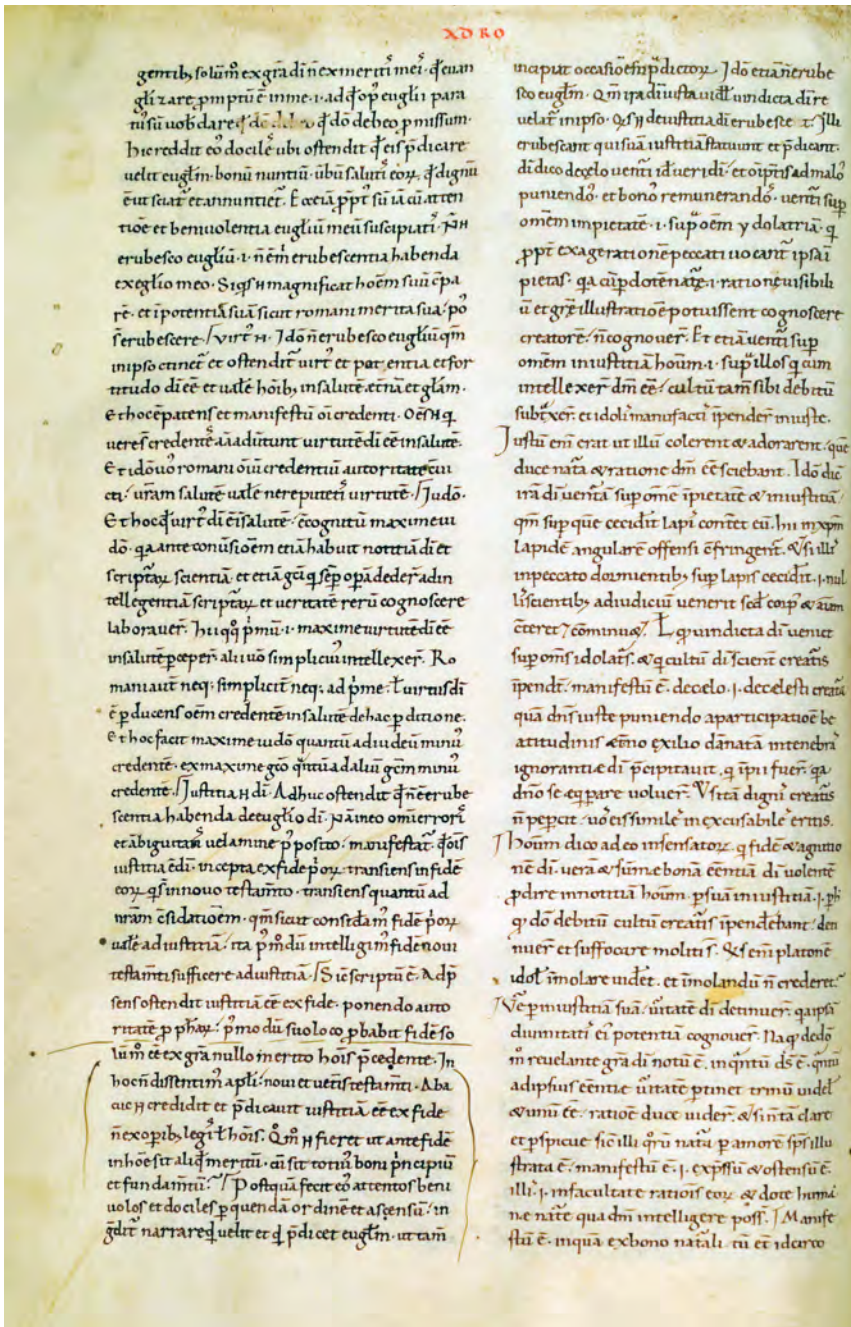 XD RO
gentib; solū m̄ ex gr̄a di n̄ ex meritī meī. qd̄ euan
gl̄izare promptū ē in me .i. ad qd̄ op' eugl̄ii para
tuſ ſū uob dare qd̄ dō debeo promiſſum.
hic reddit eoſ docileſ ubi oſtendit qd̄ eiſ p̄dicare
uelit eugl̄m. bonū nuntiū. ubū ſalutiſ eoꝝ. qd̄ dignū
ē ut ſciat̄ et annuntiet̄. Ecce iā ppt̄ ſū iā cū atten
tiōe et beniuolentia eugliū meū ſuſcipiatiſ.
erubeſco eugliū .i. n̄ em̄ erubeſcentia habenda
ex eglio meo. magnificat hoēm ſuū
rē. et īpotentiā ſuā ſicut romani merita ſua
erubeſcere. virt̄ Idō n̄ erubeſco eugliū qm̄
in ipſo ctinet̄ et oſtendit̄ virt̄ et potentia et for
titudo di ēē et ualē hoīb; in ſalutē et̄nā et gl̄am.
Et hoc ē patenſ et manifeſtū oī credenti.
uereſ credenteſ virtutē di ēē in ſalutē.
Et idō uō romani oīū credentiū autoritate cui
cti. uram ſalutē ualē ne reputetiſ virtutē. Iudō.
Et hoc qd̄ virt̄ di ē ī ſalutē cognitū maxime iu
dō. qa ante conuſioēm etiā habuit notitiā di et
ſcriptaꝝ ſcientiā. et etiā gciſ q ſēp opā dederaṫ ad in
tellegentiā ſcriptaꝝ et ueritatē rerū cognoſcere
laborauer̄. Hi iqꝗ p̄mū .i. maxime uirtutē di ēē
in ſalutē pceper̄. alii uō ſimpliciuſ intellexer̄. Ro
mani aut̄ neq; ſimplicit̄ neq; ad p̄me. ƚ virtuſ di
ē pducenſ oēm credentē in ſalutē de hac pditione.
Et hoc facit maxime iudō quantū ad iudeū minuſ
credentē. ex maxime gcō qntū ad aliū gcm̄ minuſ
credentē. Iuſtitia di. Adhuc oſtendit qd̄ n̄ ē erube
ſcentia habenda de euglio di. omī errorī
et abiguitatiſ uelamine poſito manifeſtat̄. qd̄ oīſ
iuſtitia ē di. incepta ex fide p̄oꝝ tranſienſ in fidē
eoꝝ q ſt̄ in nouo teſtam̄to. tranſienſ quantū ad
nr̄am cſidatioēm. qm̄ ſicut conſtdam̄ fidē p̄oꝝ
ualē ad iuſtitiā. ita p̄ m̄ dū intelligim̄ fidē noui
teſtam̄ti ſufficere ad iuſtitiā. Siē ſcriptū ē. Ad p̄
ſenſ oſtendit iuſtitiā ēē ex fide. ponendo auto
ritatē p phaꝝ. p̄ mo dū ſuo loco pbabit fidē ſo
lūm̄ ēē ex gr̄a nullo merito hoīſ p̄cedente. In
hoc n̄ diſſentim̄ apl̄i. noui et uetiſ teſtam̄ti. Aba
cuc credidit et p̄dicauit iuſtitiā ēē ex fide
n̄ ex opib; legiſ ƚ hoīſ. fieret ut ante fidē
in hoē ſit aliqd̄ meritū. cū ſit totiuſ boni p̄ncipiū
et fundam̄tū. Poſtquā fecit eoſ attentoſ beni
uoloſ et docileſ p quendā ordinē et aſcenſū. in
ḡdit̄ narrare qd̄ uelit et qd̄ p̄dicet eugl̄m. ut tam̄
incipiat occaſiōe p̄dictoꝝ. Idō etiā n̄ erube
ſco eugl̄m. Qm̄ ira di iuſta uidƚ uindicta di re
uelat̄ in ipſo. de iuſtitia di erubeſce Illi
erubeſcant qui ſuā iuſtitiā ſtatuunt et p̄dicant.
di dico de celo uenti id ueri di. et oīptiſ ad maloſ
puniendoſ. et bonoſ remunerandoſ. uenti ſup
omēm impietatē .i. ſup oēm ydolatriā. q
ppt̄ exagerationē peccati uocant̄ ipſa ī
pietaſ. qa cū p dotē nat̄e .i. ratione uiſibili
ū et gr̄e illuſtratiōe potuiſſent cognoſcere
creatorē. n̄ cognouer̄. Et etiā uenti ſup
omēm iniuſtitiā hoīum .i. ſup illoſ q cum
intellexer̄ dm̄ ēē. cultū tam̄ ſibi debitū
ſubt̄xer̄. et idoliſ manufactiſ īpender̄ iniuſte.
Iuſtū em̄ erat ut illū colerent & adorarent. que
duce nat̄a & ratione dm̄ ēē ſciebant. Idō dic̄
irā di uentā ſup omēm īpietatē & iniuſtitiā.
qm̄ ſup que cecidit lapiſ conteret eū. Hi in xpm̄
lapidē angularē offenſi cfringent̄. & ſi illiſ
in peccato dormientib; ſup lapiſ cecidit .i. nul
liſ ſcientib; ad iudiciū uenerit ſed corp & aīam
cteret 7 cominuet. ƚ q uindicta di uenit
ſup om̄ſ idolat̄ſ. & q cultū di ſcient creat̄iſ
īpendt̄. manifeſtū ē. de celo .i. de celeſti creat̄a
quā dnſ iuſte puniendo a participatiōe be
atitudiniſ æt̄no exilio dānatā in tenebriſ
ignorantiæ di p̄cipitauit. q īpii fuer̄. qa
dn̄o ſe eqpare uoluer̄. Vſi tā digniſ creat̄iſ
n̄ pepcit. uō eiſ ſimileſ inexcuſabileſ eritiſ.
Hoīum dico adeo inſenſatoꝝ. q fidē & agnitio
nē di. uerā & ſūme bonā eēntiā di uolentē
pdire in notitiā hoīum. p ſuā iniuſtitiā .i. ph̄i
q dō debitū cultū creat̄iſ īpendebant. den
nuer̄ et ſuffocare moliti ſ̄. & ſenī platonē
idolƚ īmolare uidet̄. et īmolandū n̄ crederet.
Ve p iniuſtitiā ſuā. uitatē di detinuer̄. qa ipſā
diuinitatiſ eiſ potentiā cognouer̄. Na qd̄ de dō
m̄ reuelante gr̄a di notū ē. in qntū dſ ē. qntū
ad ipſiuſ eēntiæ uitatē ptinet trinū uidelƚ
& unū ēē. ratiōe duce uider̄. & ſi n̄ tā clare
et pſpicue ſic illi qrū nat̄a p amorē ſp̄ſ illu
ſtrata ē. manifeſtū ē .i. expſſū & oſtenſū ē.
illiſ .i. in facultate ratiōiſ eoꝝ & dote huma
ne nat̄e qua dm̄ intelligere poſſt̄. Manife
ſtū ē. inquā ex bono nat̄ali tū et idcirco